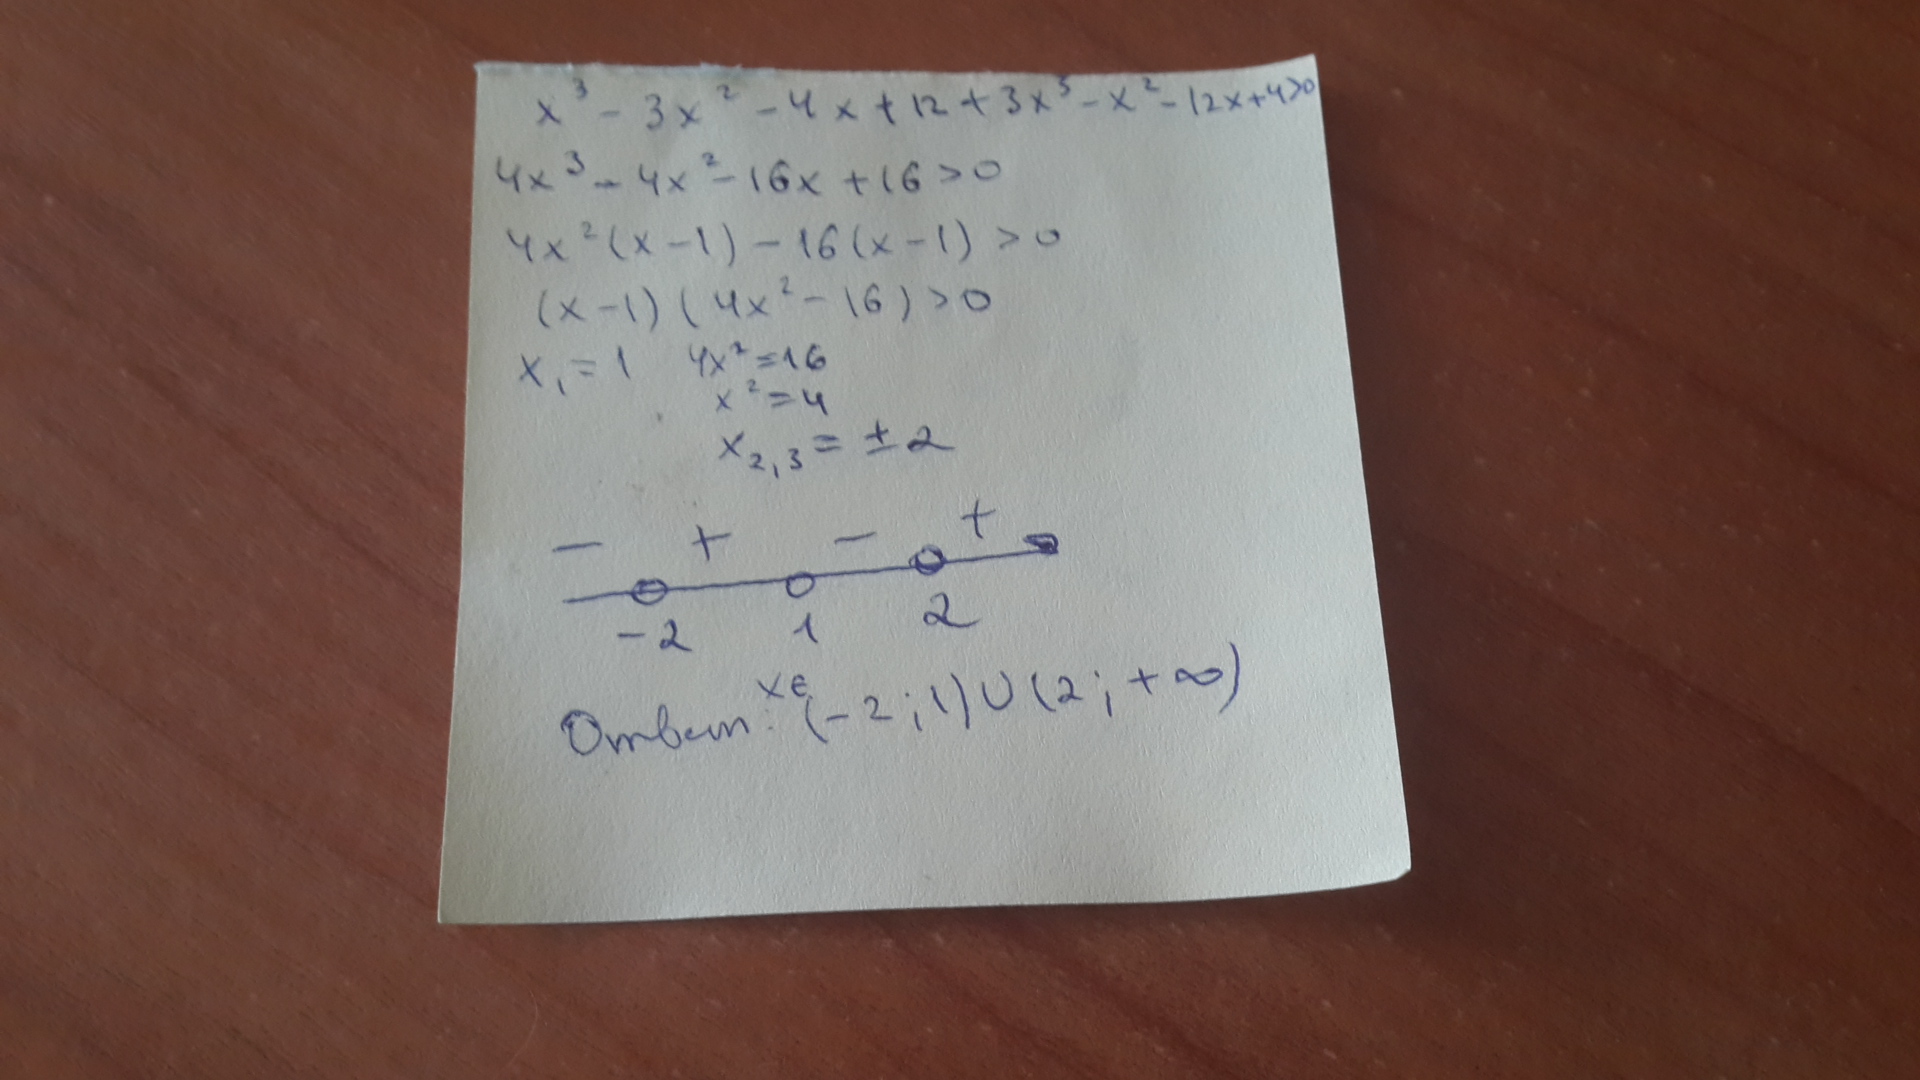 x³ - 3x² - 4x + 12 + 3x³ - x² - 12x + 4 > 0
4x³ - 4x² - 16x + 16 > 0
4x²(x - 1) - 16(x - 1) > 0
(x - 1)(4x² - 16) > 0
x₁ = 1 4x² = 16
x² = 4
x₂,₃ = ± 2
- + - +
-2 1 2
Ответ: x∈(-2; 1)∪(2; +∞)